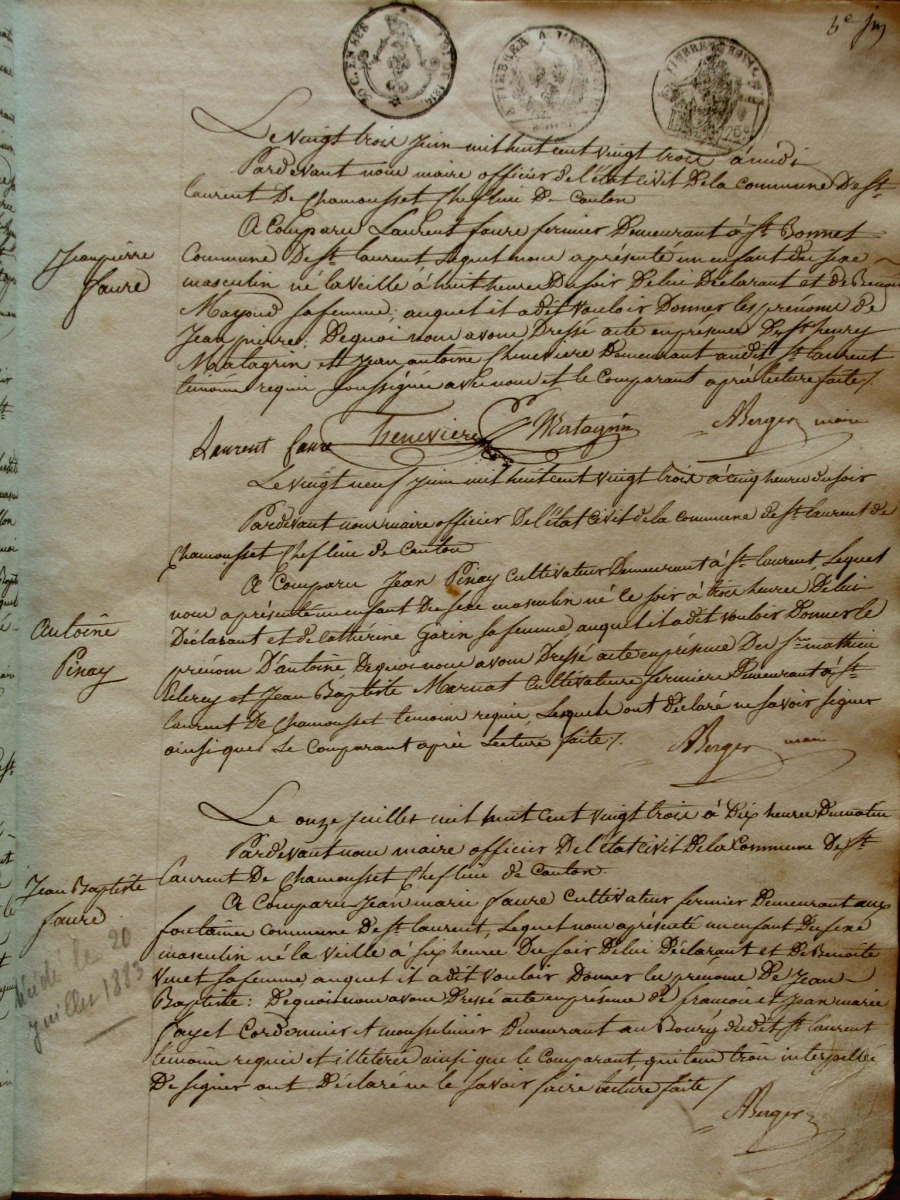 Le vingt trois juin mil huit cent vingt trois à midi
Pardevant nous maire officier de l'état civil de la commune de St
laurent De Chamousset Chef lieu de Canton
A Comparu Laurent faure fermier Demeurant à St Bonnet
Jean pierre
faure
Commune De St laurent, Lequel nous a présenté un enfant du sexe
masculin né la veille à huit heures Du soir De lui Déclarant et de Benoite
Mayoud sa femme, auquel il a dit vouloir Donner les prénoms de
Jean pierre. De quoi nous avons Dressé acte en présence De Sr henry
Matagrin et Jean antoine Thenevierre Demeurant au dit St laurent
témoins requis soussignés avec nous et le comparant après lecture faite /.
Laurent faure Thenevierre Matagrin ABerger maire
Le vingt neuf juin mil huit cent vingt trois à cinq heures du soir
Pardevant nous maire officier De l'état civil de la commune de St laurent de
Chamousset Chef lieu de Canton
A Comparu Jean Pinay Cultivateur Demeurant à St laurent, Lequel
nous a présenté un enfant Du sexe masculin né ce soir à trois heures De lui
Antoine
Pinay
Déclarant et de Cathérine Garin sa femme auquel il a dit vouloir Donner le
prénom D'antoine De quoi nous avons Dressé acte en présence Des Srs mathieu
et Jean Baptiste Marnat Cultivateurs fermiers Demeurant à St
laurent De Chamousset témoins requis, Lesquels ont Déclaré ne savoir signer
ainsi que Le Comparant après Lecture faite /. ABerger maire
Le onze juillet mil huit cent vingt trois à Dix heures Du matin
Pardevant nous maire officier De l'état Civil De la Commune De St
Laurent De Chamousset Chef lieu de Canton.
Jean Baptiste
faure
A Comparu Jean marie faure Cultivateur fermier Demeurant aux
fontaines commune De St laurent, Lequel nous a présenté un enfant Du sexe
masculin né la veille à six heures Du soir De lui Déclarant et De Benoite
Vinet sa femme auquel il a dit vouloir Donner les prenoms De Jean
Décédé le 20
juillet 1883
Baptiste: De quoi nous avons Dressé acte en présence de francois et Jean marie
fayet Cordonnier et mousselinier Demeurant au Bourg dudit St laurent
témoins requis et illetérés ainsi que le comparant qui tous trois interpellés
De signer ont Déclaré ne le savoir faire lecture faite /
ABerger